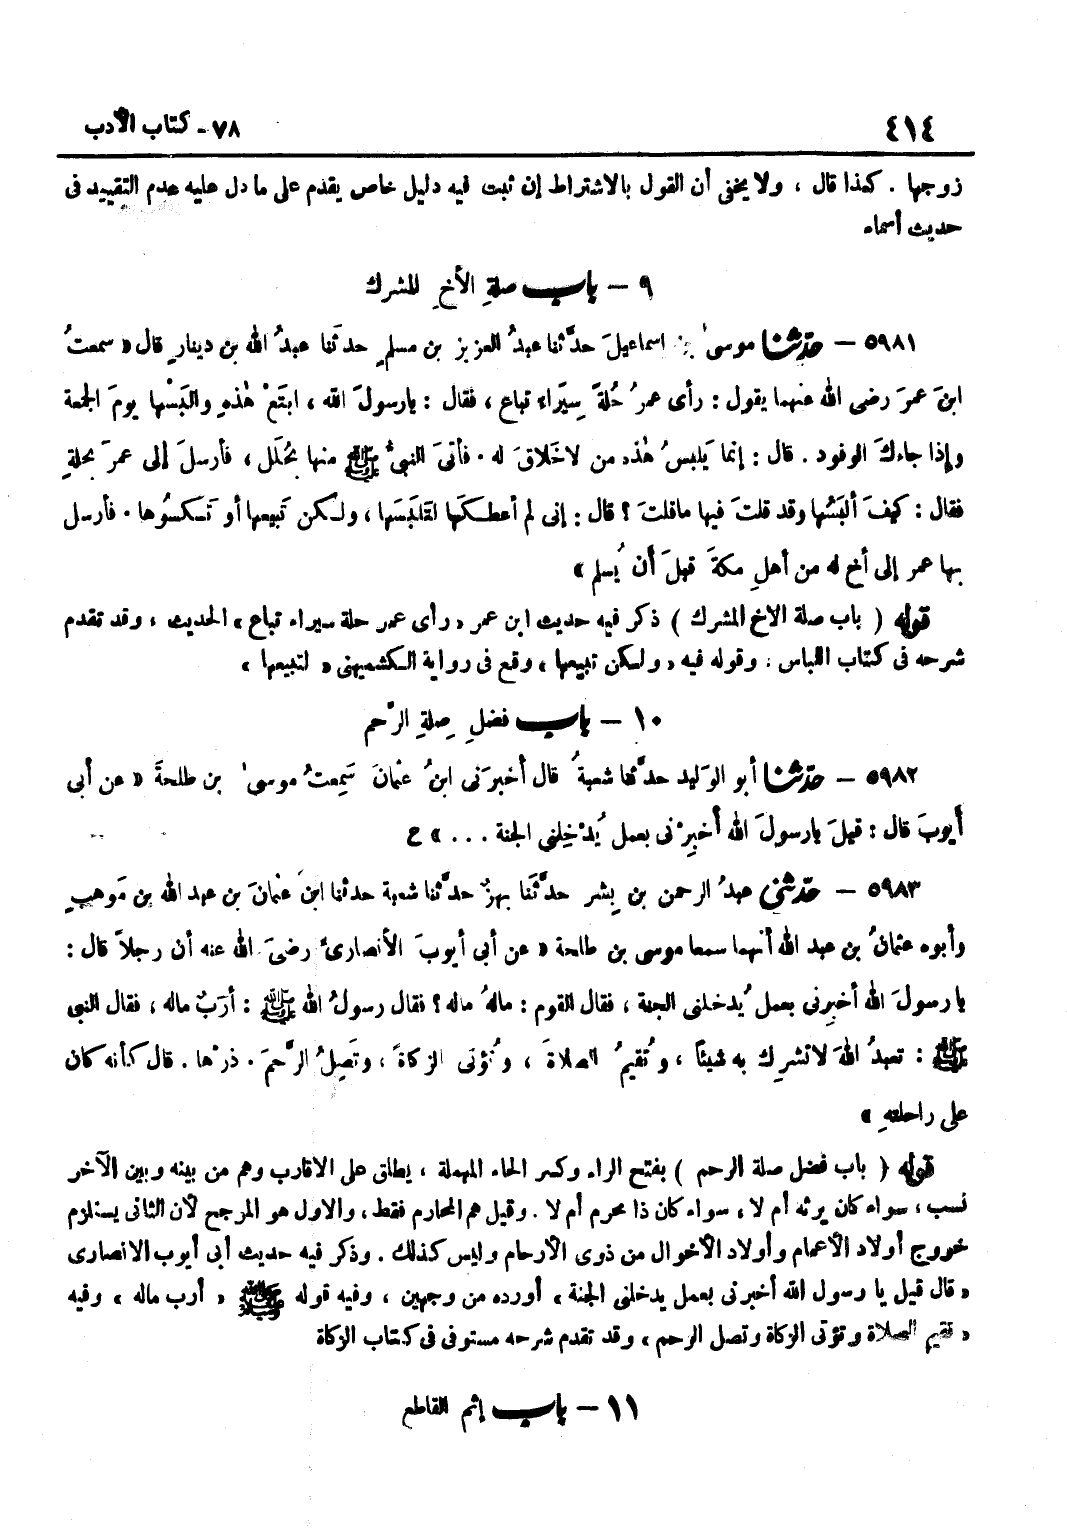 ٤١٤
٧٨ - كتاب الأدب
زوجها . كذا قال ، ولا يخفى أن القول بالاشتراط إن ثبت فيه دليل خاص يقدم على ما دل عليه عدم التقييد فى
حديث أسماء
٩ - باب صلةِ الأخِ المشرك
٥٩٨١ - حدّثنا موسىٰ بن اسماعيلَ حدَّثنا عبدُ العزيز بن مسلمٍ حدثَنا عبدُ الله بن دينارٍ قال « سمعتُ
ابنَ عمرَ رضى الله عنهما يقول : رأى عمرُ حُلةَ سِيَراء تباع ، فقال : يارسولَ الله ، ابتَعْ هٰذهِ والبَسْها يومَ الجمعة
وإذا جاءكَ الوفود . قال : إنما يَلبسُ هٰذه من لاخَلاقَ له . فأتى النبىُّ ﷺ منها بحُلَل ، فأرسلَ إلى عمرَ بحلةٍ
فقال : كيفَ ألبَسُها وقد قلتَ فيها ماقلتَ ؟ قال : إنى لم أعطكَها لتَلبَسَها ، ولكن تَبيعها أو تَكسوُها . فأرسل
بها عمر إلى أخ له من أهلِ مكةَ قبلَ أن يُسلم »
قوله ( باب صلة الاخ المشرك ) ذكر فيه حديث ابن عمر « رأى عمر حلة سيراء تباع » الحديث ، وقد تقدم
شرحه فى كتاب اللباس . وقوله فيه « ولكن تبيعها » وقع فى رواية الكشميهنى « لتبيعها »
١٠ - باب فضلِ صِلةِ الرَّحم
٥٩٨٢ - حدّثنا أبو الوَليد حدَّثنا شعبةُ قال أخبرَنى ابنُ عثمانَ سَمِعتُ موسىٰ بن طلحةَ « عن أبى
أيوبَ قال : قيلَ يارسولَ الله أخبِرْنى بعمل يُدْخِلنى الجنة ... » ح
٥٩٨٣ - حدّثنى عبدُ الرحمن بن بِشر حدَّثَنا بهزٌ حدَّثنا شعبة حدثنا ابنُ عثمانَ بن عبد الله بن مَوهبٍ
وأبوه عثمانُ بن عبد الله أنهما سمعا موسى بن طلحة « عن أبى أيوبَ الأنصارىِّ رضىَ الله عنه أن رجلاً قال :
يا رسولَ الله أخبِرنى بعمل يُدخلنى الجنة ، فقال القوم : مالهُ ماله ؟ فقال رسولُ الله ﷺ : أرَبٌ ماله ، فقال النبى
ﷺ : تعبدُ اللهَ لاتشرِك به شيئاً ، وتُقيمُ الصلاةَ ، وتُؤتى الزكاةَ ، وتَصِلُ الرَّحمَ . ذرْها . قال كأنه كان
على راحلتهِ »
قوله ( باب فضل صلة الرحم ) بفتح الراء وكسر الحاء المهملة ، يطلق على الاقارب وهم من بينه وبين الآخر
نسب ، سواء كان يرثه أم لا ، سواء كان ذا محرم أم لا . وقيل هم المحارم فقط ، والاول هو المرجح لأن الثانى يستلزم
خروج أولاد الأعمام وأولاد الأخوال من ذوى الأرحام وليس كذلك . وذكر فيه حديث أبى أيوب الانصارى
« قال قيل يا رسول الله أخبرنى بعمل يدخلنى الجنة » أورده من وجهين ، وفيه قوله ﷺ « أرب ماله » وفيه
« تقيم الصلاة وتؤتى الزكاة وتصل الرحم » وقد تقدم شرحه مستوفى فى كتاب الزكاة
١١ - باب إثم القاطع